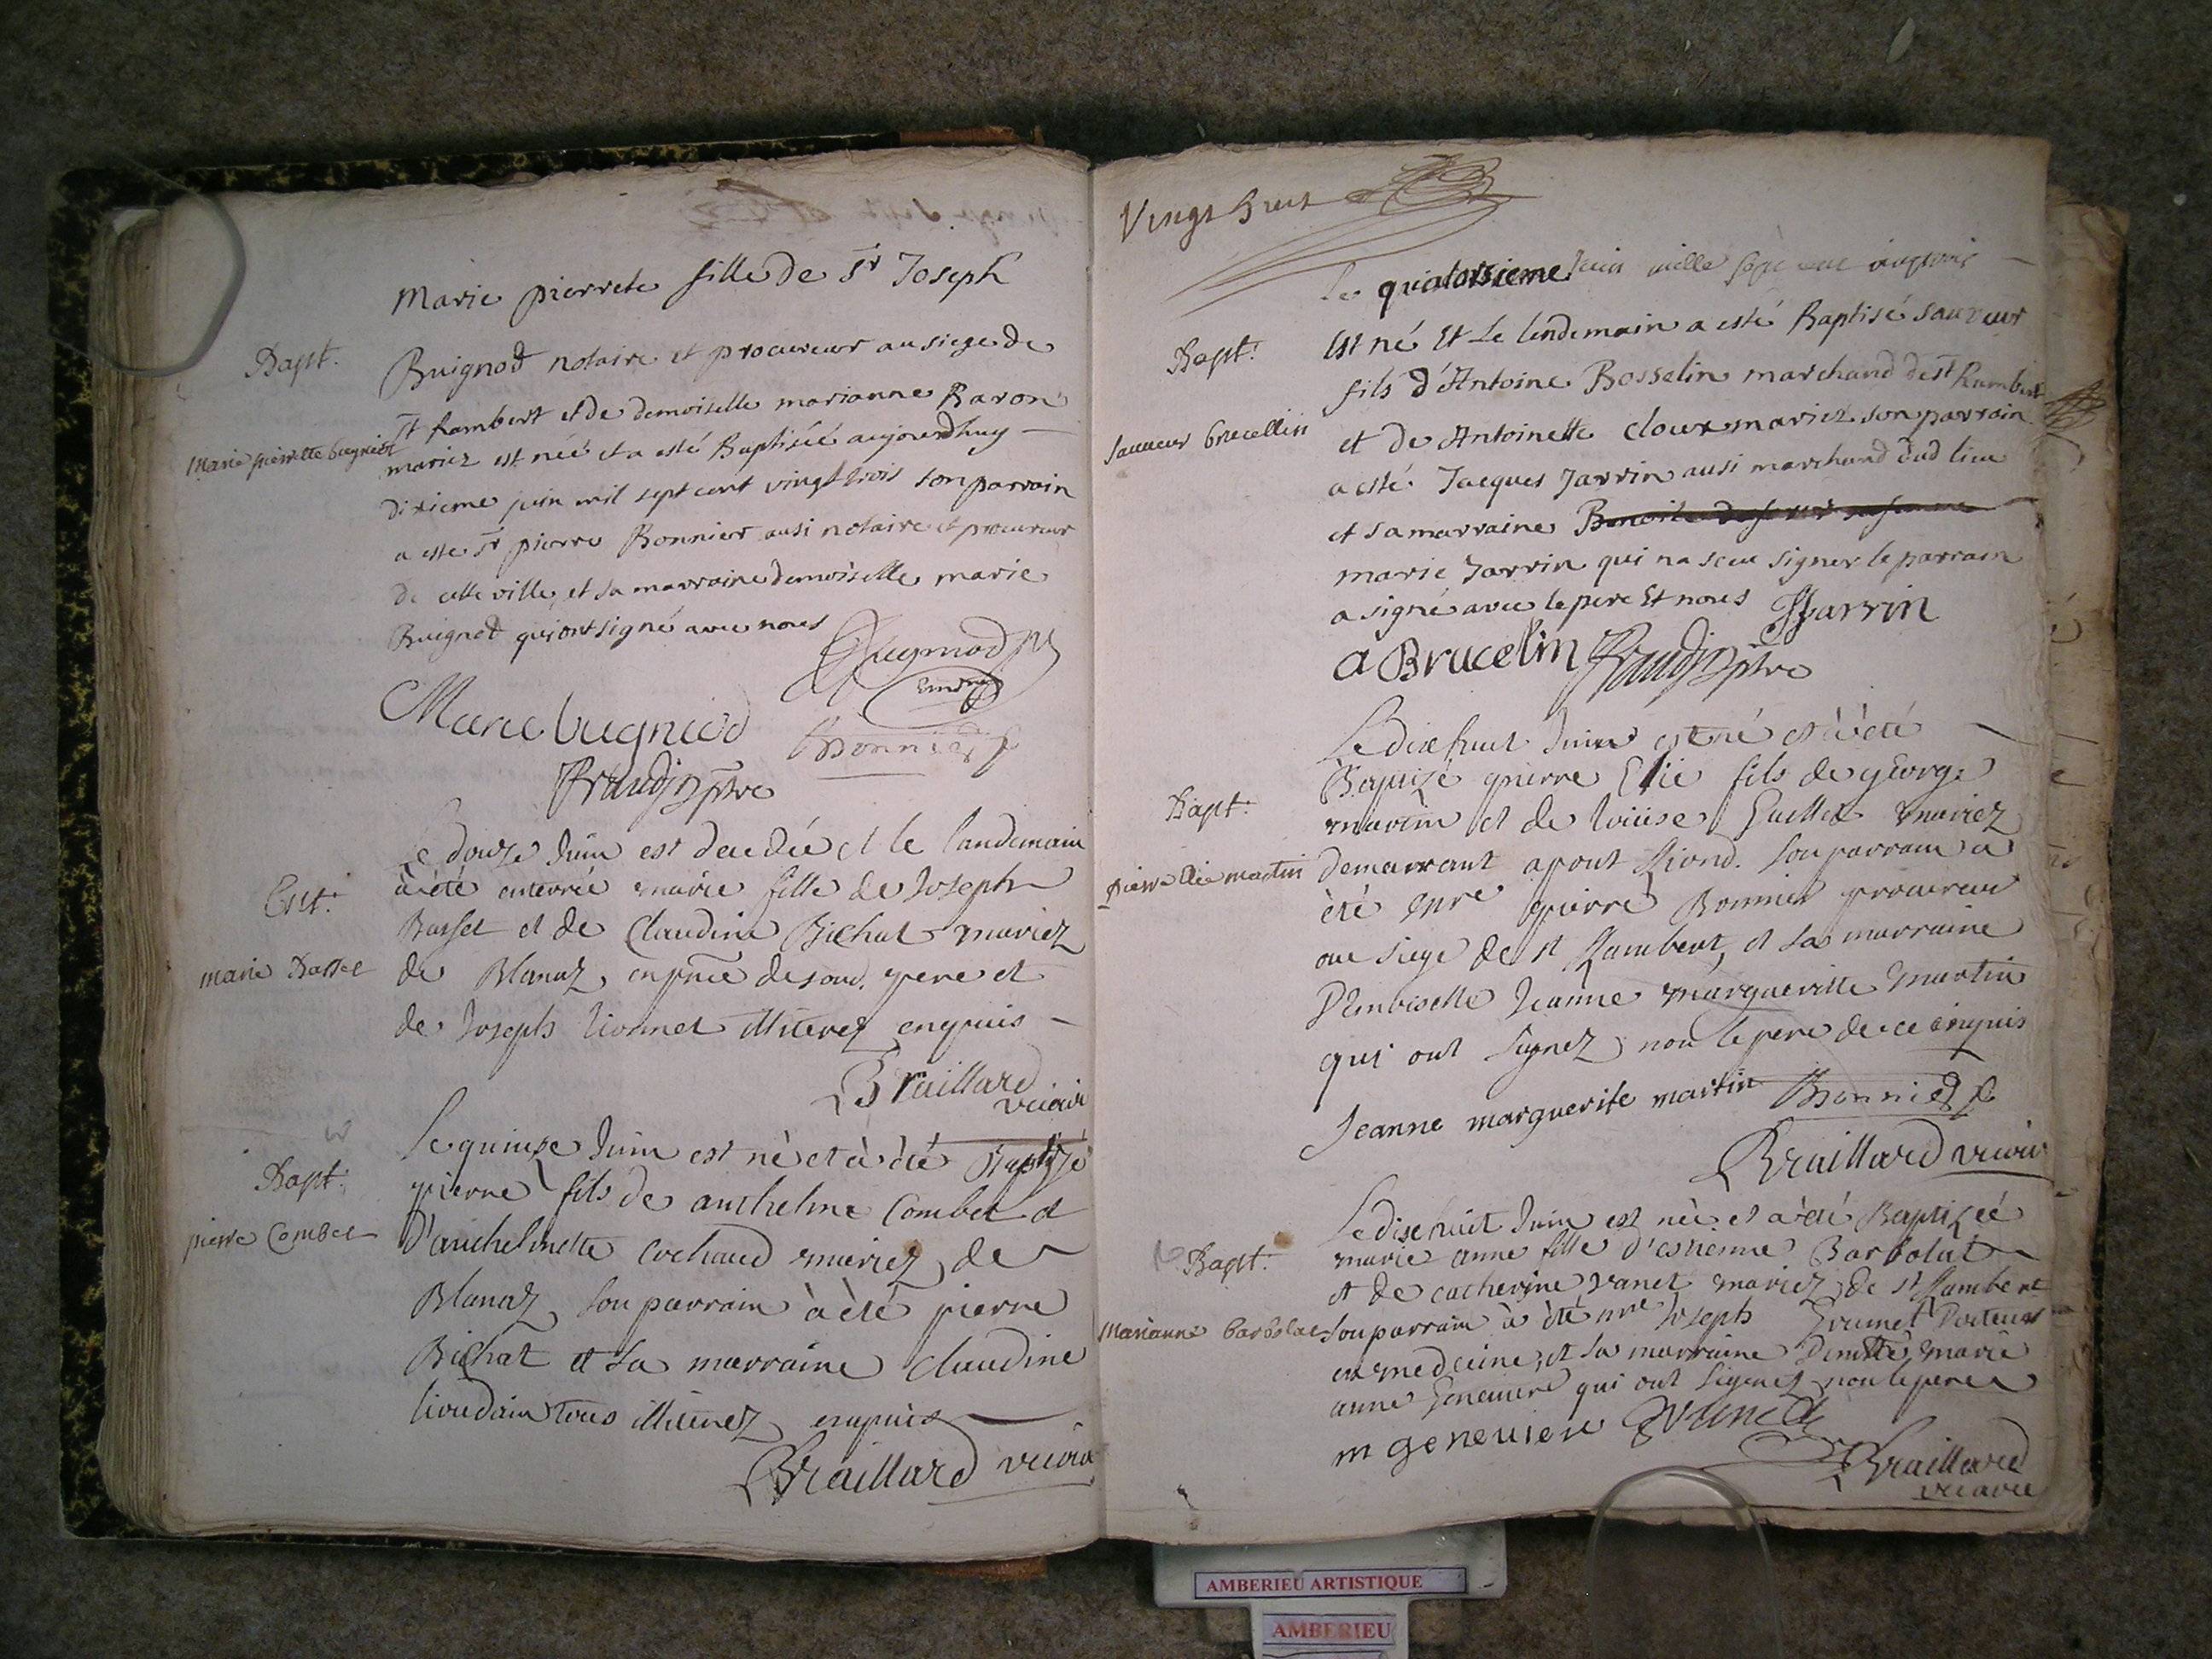 Marie pierrete fille de Sr Joseph
Bapt.
Buignod notaire et procureur au siege de
St Rambert et de demoiselle marianne Baron
Marie pierrette bugniod
mariez est néé et a esté Baptiséé aujourdhuy
dixieme juin mil sept cent vingt trois son parrain
a esté sr pierre Bonnier ausi notaire et procureur
de cette ville, et sa marraine demoiselle marie
Buignod qui ont signé avec nous
Marie bugniod
Bonnier
Braudjn ptre
Le douze Juin est decedée et le landemain
Ent.
à été enterrée marie fille de Joseph
Basset et de Claudine Bichat mariez
marie Basset
de Blanaz, en pnce desoud. pere et
de Joseph lionnet illiterez enquis
Braillard vicaire
Le quinze Juin est né et à été Baptizé
Bapt.
pierre fils de anthelme Combet et
pierre Combet
D'anthelmette Cochaud mariez de
Blanaz, son parrain à été pierre
Bichat et sa marraine Claudine
lioudain tous illiterez enquis
Braillard vicaire
Vingt huit
Le quatorsieme Juin mille sept cent vingt trois
Est né Et Le lendemain a esté Baptisé sauveur
Bapt.
fils d'Antoine Bosselin marchand de st Rambert
sauveur brucellin
et de Antoinette cloux mariez son parrain
a esté Jacques Jarrin ausi marchand dud lieu
et sa marraine
marie Jarrin qui na sceu signer le parrain
a signé avec le pere Et nous JJarrin
a Brucelin Braudjn ptre
Le dix huit Juin est né et à été
Baptizé pierre Elie fils de george
Bapt.
martin et de louise Guillet mariez
pierre elie martin
demeurant a pont Riond. Son parrain a
été mre pierre Bonnier procureur
au siege de st Rambert, et sa marraine
Demoiselle Jeanne margueritte Martin
qui ont signez non le pere de ce enquis
Jeanne marguerite martin Bonnier
Braillard vicaire
Le dix huit Juin est née et a été Baptizéé
Bapt.
marie anne fille d'estienne Barbolat
et de catherine vanet mariez de st Rambert
Marianne barbolat
son parrain à été mre Joseph Grumet Docteur
en medecine, et sa marraine Dmlle marie
anne Genevieve qui ont signez non le pere
m genevieve Grumet
Braillard
vicaire
AMBERIEU ARTISTIQUE
AMBERIEU